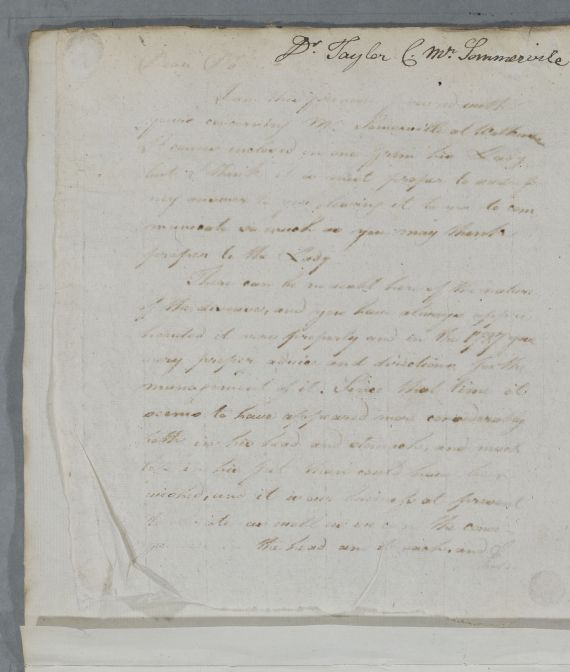 Dr. Taylor C. Mr. Sommervile
Dear Sr
I am this favoured with
yours concerning Mr. Somerville at
It came inclosed in one from his Lady
but I think it is most proper to address
my answer to you leaving it to you to com
municate so much as you may think
proper to the Lady
There can be no doubt here of the nature
of the disease, and you have always appre
hended it very properly and in the 1787 gave
very proper advice and directions for the
management of it. Since that time it
seems to have appeared more considerably
both in his head and stomach, and much
less in his feet than could have been
wished, and it is our business at present
to as well as we can the
the head and stomach, and